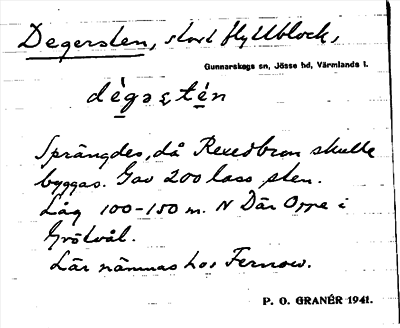 Degersten, stort flyttblock,
Gunnarskogs sn, Jösse hd, Värmlands l.
dè̀gəʂtén
Sprängdes, då Rexedbron skulle
byggas. Gav 200 lass sten.
Låg 100-150 m. N Där Oppe i
Grötvål.
Lär nämnas hos Fernow.
P. O. GRANÉR 1941.